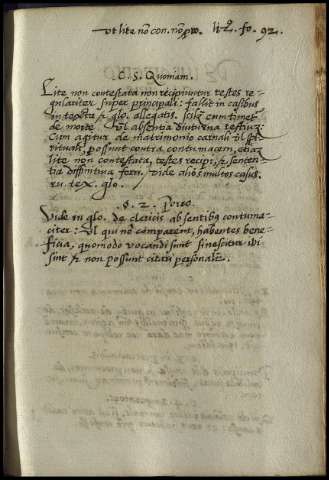 Ut lite nõ con. nõ pro. li2. fo. 92.
C. 5. Quoniam.
Lite non contestata non recipiuntur testes re-
gulariter super principali: fallit in casibus
in textu & glo. allegatis. scilz cum timet
de morte Vl absentia diuturna testiuz:
Cum agitur de matrimonio carnali Vl spi
rituali, possunt contra contumacem, etiaz
lite non contestata, testes recipi, & senten-
tia diffinitiua ferri. vide alios multos casus.
glo.
§. 2. Porro
Vide in glo. de clericis absentibus contuma-
citer: Vl qui nõ comparent, habentes bene-
ficia, quomodo vocandi sunt si nescitur vbi
sint & non possunt citari personalr.